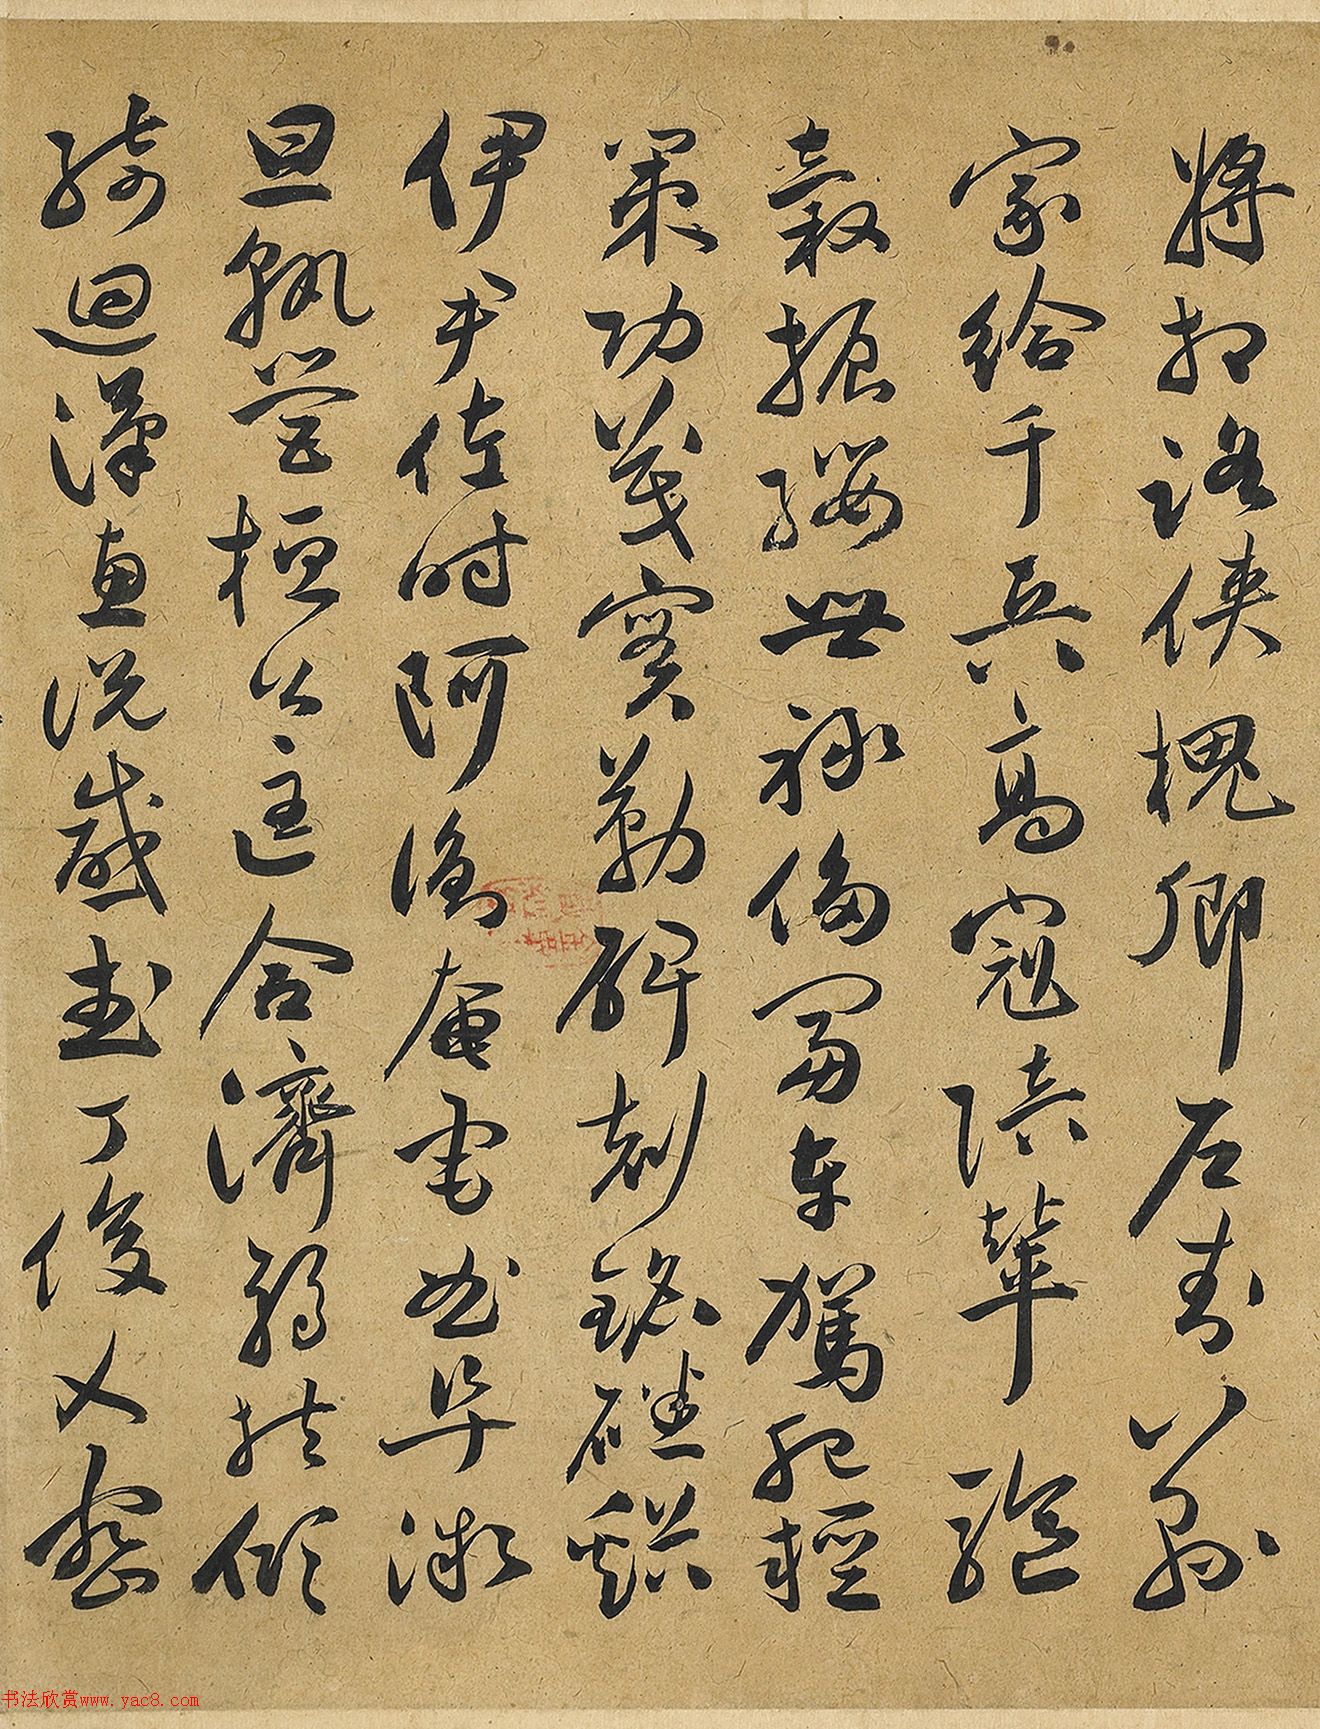 將相路俠槐卿戶封八縣
家給千兵高冠陪輦驅
轂振纓世祿侈富車駕肥輕
策功茂實勒碑刻銘磻谿
伊尹佐時阿衡奄宅曲阜微
旦孰營桓公匡合濟弱扶傾
綺迴漢惠說感武丁俊乂密
书法欣赏www.yac8.com